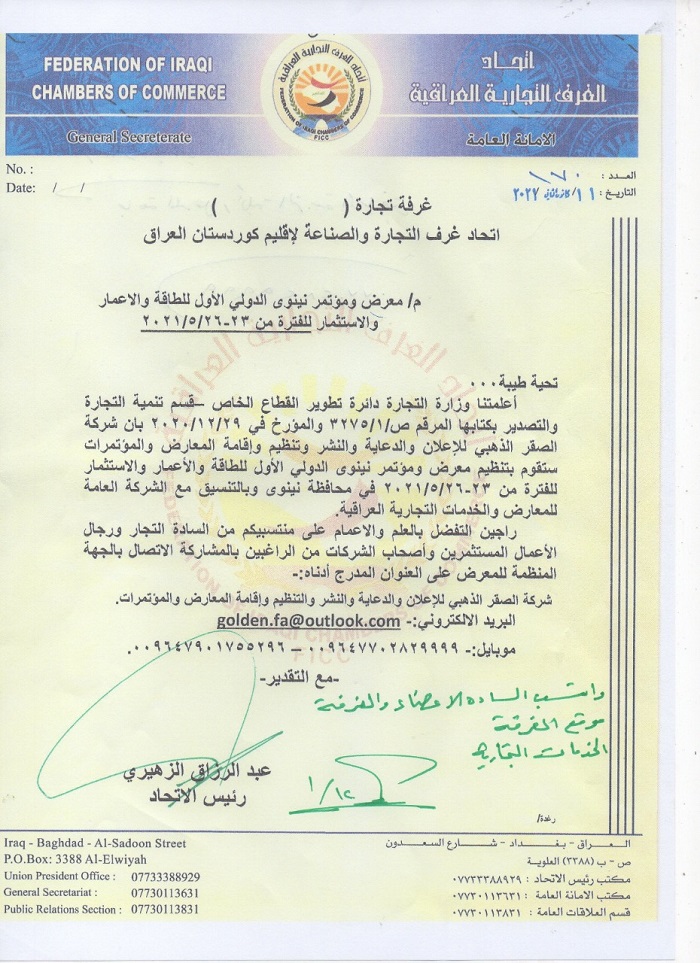 FEDERATION OF IRAQI
CHAMBERS OF COMMERCE
General Secreterate
اتحاد
الغرف التجارية العراقية
الامانة العامة
اتحاد الغرف التجارية العراقية
FEDERATION OF IRAQI CHAMBERS OF COMMERCE
FICC
No. :
Date: / /
العدد : ١٧٠
التاريخ : ١١/كانون الثاني ٢٠٢٢
غرفة تجارة ( )
اتحاد غرف التجارة والصناعة لإقليم كوردستان العراق
م/ معرض ومؤتمر نينوى الدولي الأول للطاقة والاعمار
والاستثمار للفترة من ٢٣-٢٠٢١/٥/٢٦
تحية طيبة...
أعلمتنا وزارة التجارة دائرة تطوير القطاع الخاص –قسم تنمية التجارة
والتصدير بكتابها المرقم ص/٣٢٧٥/١ والمؤرخ في ٢٠٢٠/١٢/٢٩ بان شركة
الصقر الذهبي للإعلان والدعاية والنشر وتنظيم وإقامة المعارض والمؤتمرات
ستقوم بتنظيم معرض ومؤتمر نينوى الدولي الأول للطاقة والأعمار والاستثمار
للفترة من ٢٣-٢٠٢١/٥/٢٦ في محافظة نينوى وبالتنسيق مع الشركة العامة
للمعارض والخدمات التجارية العراقية.
راجين التفضل بالعلم والاعمام على منتسبيكم من السادة التجار ورجال
الأعمال المستثمرين وأصحاب الشركات من الراغبين بالمشاركة الاتصال بالجهة
المنظمة للمعرض على العنوان المدرج أدناه:-
شركة الصقر الذهبي للإعلان والدعاية والنشر والتنظيم وإقامة المعارض والمؤتمرات.
البريد الالكتروني:- golden.fa@outlook.com
موبايل:- ٠٠٩٦٤٧٧٠٢٨٢٩٩٩٩ – ٠٠٩٦٤٧٩٠١٧٥٥٢٩٦.
-مع التقدير-
السادة الاعضاء والغرفة
موقع الغرفة
الخدمات التجارية
١/١٢
عبد الرزاق الزهيري
رئيس الاتحاد
رغدة/
Iraq - Baghdad - Al-Sadoon Street
P.O.Box: 3388 Al-Elwiyah
Union President Office : 07733388929
General Secretariat : 07730113631
Public Relations Section : 07730113831
العراق - بغداد - شارع السعدون
ص - ب (٣٣٨٨) العلوية
مكتب رئيس الاتحاد : ٠٧٧٣٣٣٨٨٩٢٩
مكتب الامانة العامة : ٠٧٧٣٠١١٣٦٣١
قسم العلاقات العامة : ٠٧٧٣٠١١٣٨٣١